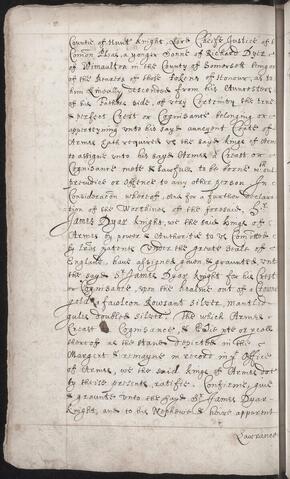 Countie of Hunt Knight, Lord Cheife Justice of
Com̄on Pleas, a yonger Sonne of Richard Dyer
of Wimaulton in the County of Somerset
of the bearers of those Tokens of Honour, as to
him Lineally descended from his Auncestors
of his Fathers side, of very Certeinty the true
& perfect Crest or Cognisance belonging or
apperteyning unto his sayd auncyent Coate of
Armes hath required us the sayd Kings of Armes
to assigne unto his sayd Armes a Creast or
Cognisance mete & lawfull to be borne wthout
preiudice or offence to any other person In
Consideration whereof, And for a further declara
tion of the Worthines of the foresaid, Sr
James Dyar knight, we the said kings of
Armes by power & Authoritie to us Com̄itted
by lres patents Under the greate Seale of
England, have assigned given & graunted unto
the sayd Sr James Dyar Knight for his Crest
or Cognisance, upon the healme out of a Crowne
gold, a fawlcon Rowsant silver, mantled
gules doubled silver. The which Armes
Creast Cognisance, & every pte or parcell
thereof as the same depicted in the
Margent & remayne in record in ye Office
of Armes, we the said kings of Armes doe
by theise presents, ratifie, Confirme, give
& graunte unto the sayd Sr James Dyar
Knight, and to his Nephewe & heire apparent
Lawrance